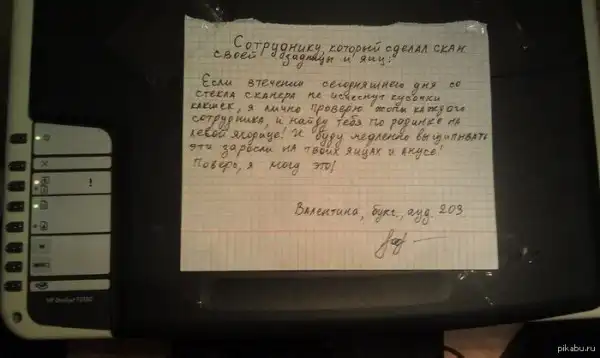 Сотруднику, который сделал скан
своей задницы и яиц.
Если втечении сегодняшнего дня со
стекла сканера не исчезнут кусочки
какшек, я лично проверю жопы каждого
сотрудника, и найду тебя по родинке на
левой ягодице! И буду медленно выщипывать
эти заросли на твоих яйцах и анусе!
Поверь, я могу это!
Валентина, бухг, ауд. 203
!
pikabu.ru